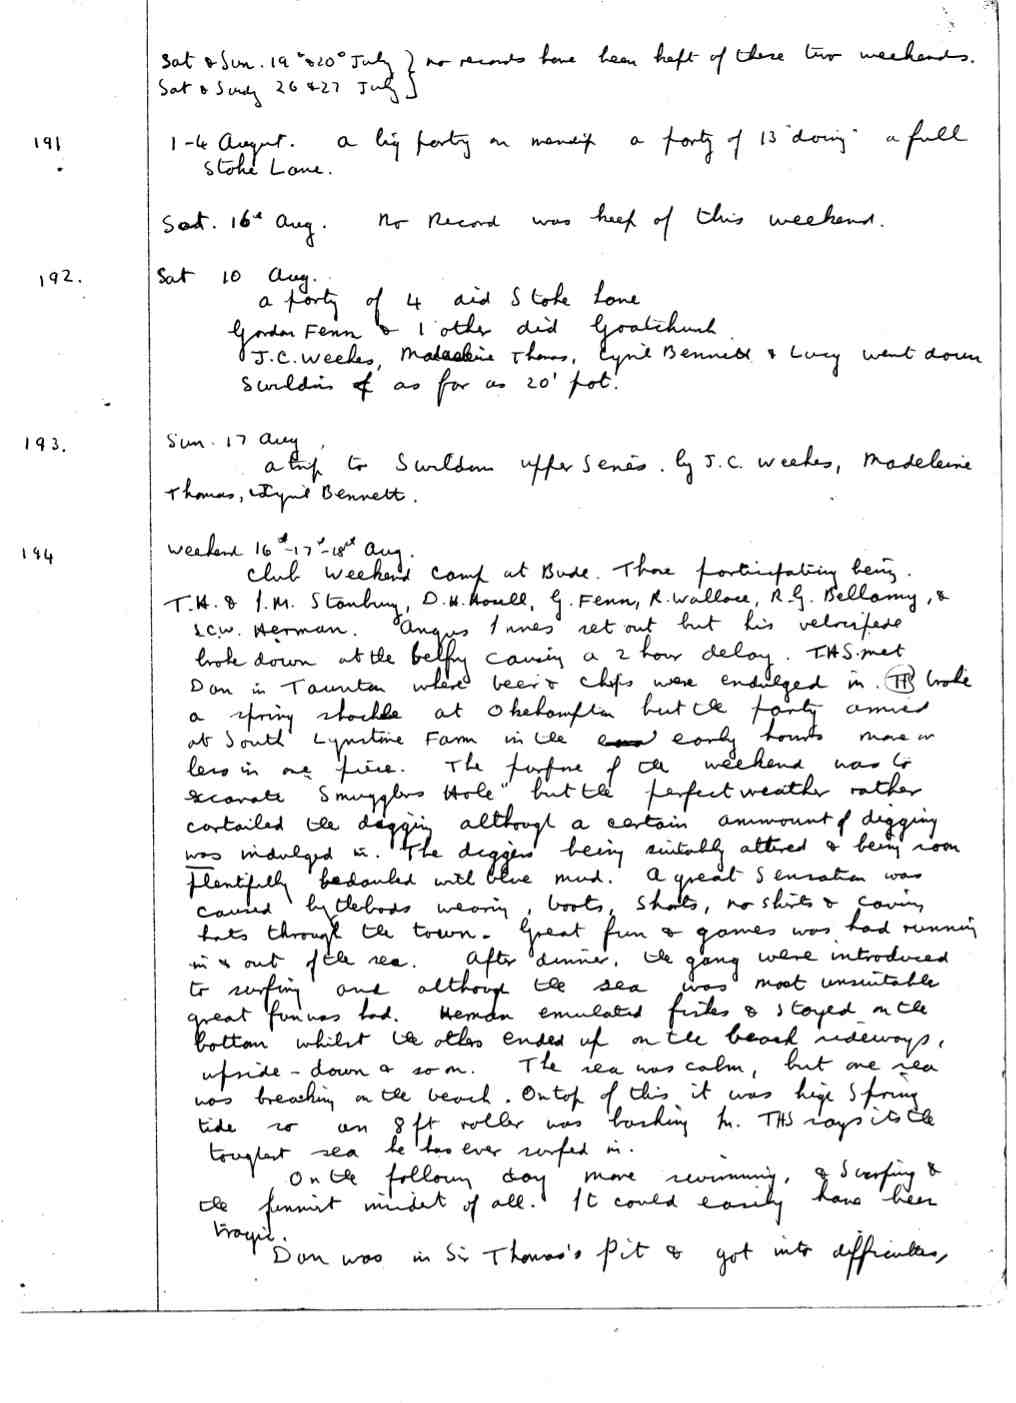 Sat & Sun. 19° & 20° July } no records have been keft of these two weekends.
Sat & Sundy 26 & 27 July }
191 1-4 August. a big party on mendip a party of 13 "doing" a full
Stoke Lane.
Sat. 16th Aug. No Record was keep of this weekend.
192. Sat 10 Aug.
a party of 4 did Stoke Lane
Gordon Fenn & 1 other did Goatchurch
J.C. Weekes, Madeleine Thomas, Cyril Bennett & Lucy went down
Swildins as far as 20' pot.
193. Sun. 17 Aug.
a trip to Swildons upper Series. by J.C. Weekes, Madeleine
Thomas, Cyril Bennett.
194 Weekend 16th-17th-18th Aug.
Club Weekend camp at Bude. Those participating being.
T.H. & I.M. Stanbury, D.H. Hasell, G. Fenn, R. Wallace, R.G. Bellamy, &
S.C.W. Herman. Angus Innes set out but his velocipede
broke down at the belfry causing a 2 hour delay. T.H.S. met
Dan in Taunton where beer & chips were endulged in. broke
a spring shackle at Okehampton but the party arrived
at South Lynstone Farm in the early hours more or
less in one piece. The purpose of the weekend was to
excavate "Smugglers Hole" but the perfect weather rather
cartailed the digging although a certain ammount of digging
was indulged in. The diggers being suitably attired & being soon
plentifully bedaubed with blue mud. A great Sensation was
caused by the bods wearing, boots, shorts, no shirts & caving
hats through the town. Great fun & games was had running
in & out of the sea. After dinner, the gang were introduced
to surfing and although the sea was most unsuitable
great fun was had. Herman emulated fishes & stayed on the
bottom whilst the others ended up on the beach sideways,
upside-down & so on. The sea was calm, but one sea
was breaking on the beach. On top of this it was high Spring
tide so an 8 ft roller was bashing in. THS says its the
toughest sea he has ever surfed in.
On the following day more swimming, & Surfing &
the funniest incident of all. It could easily have been
tragic.
Dan was in Sir Thomas's Pit & got into difficulties,